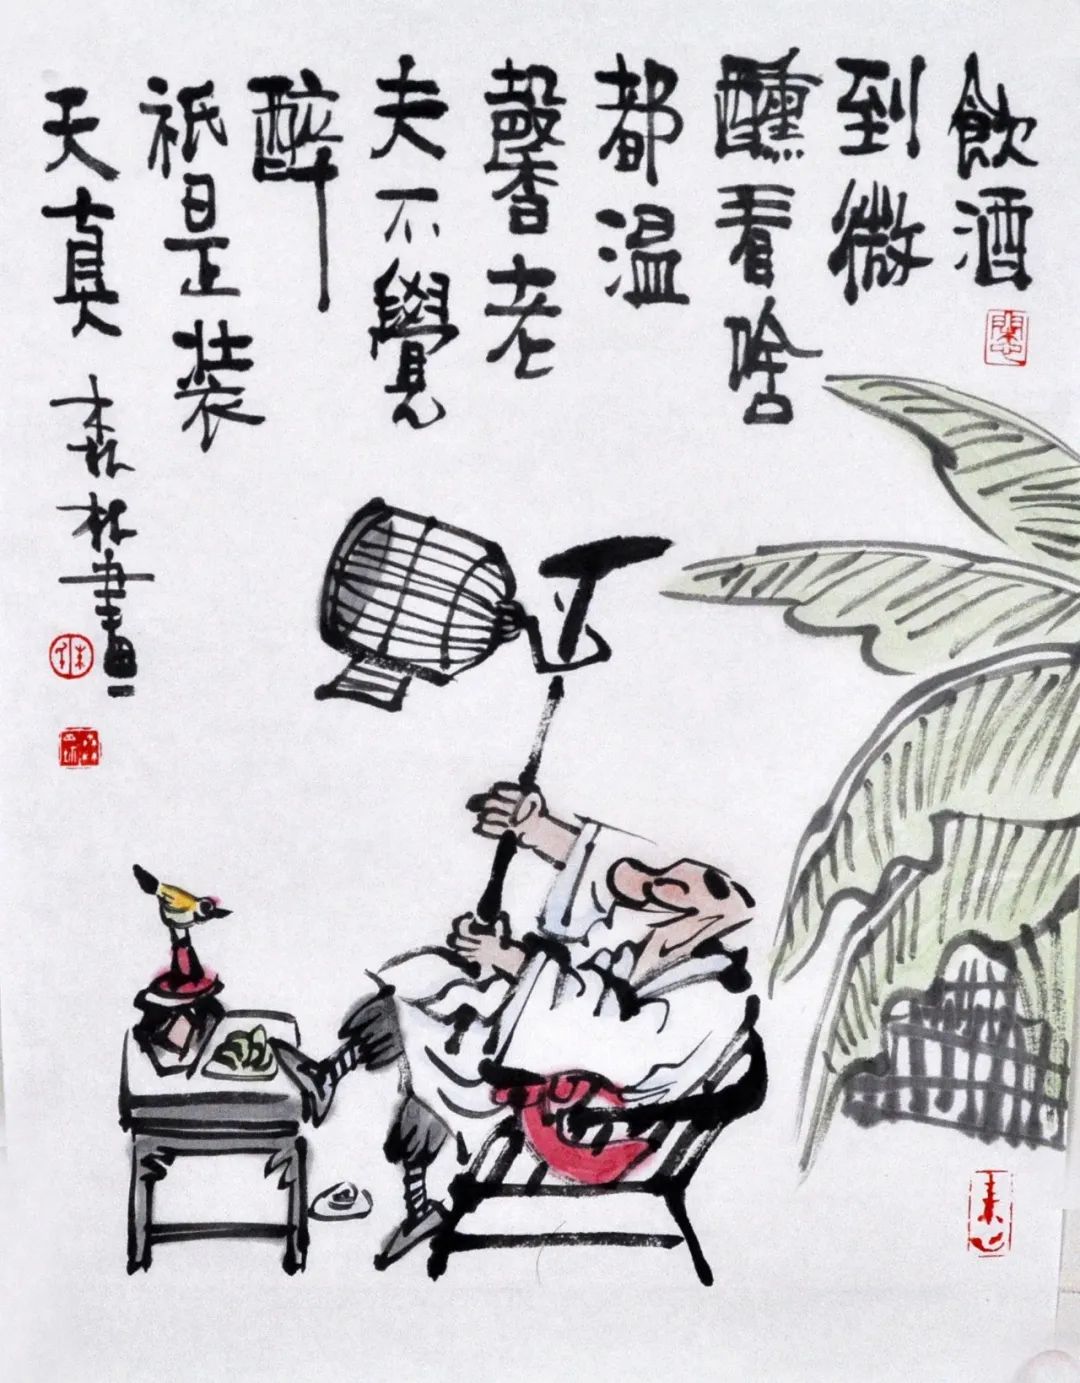 飲酒
到微
醺看啥
都温
馨老
夫不覺
醉
祇是裝
天真
森林畫